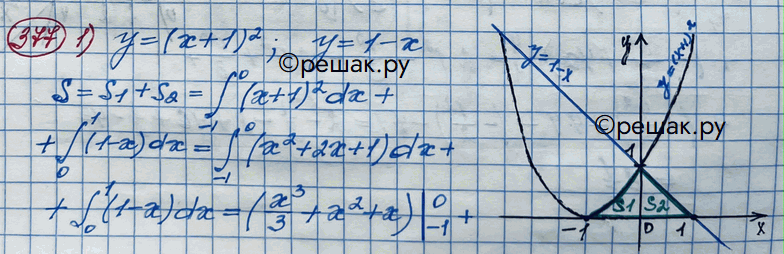 377 1) y = (x+1)²; y = 1-x
©решак.ру
S = S1 + S2 = ∫₋₁⁰ (x+1)² dx +
+ ∫₀¹ (1-x) dx = ∫₋₁⁰ (x²+2x+1) dx +
+ ∫₀¹ (1-x) dx = (x³/3 + x² + x) |₋₁⁰ +
y = 1-x
y
y=(x+1)²
©решак.ру
1
S1 S2
-1 0 1 x